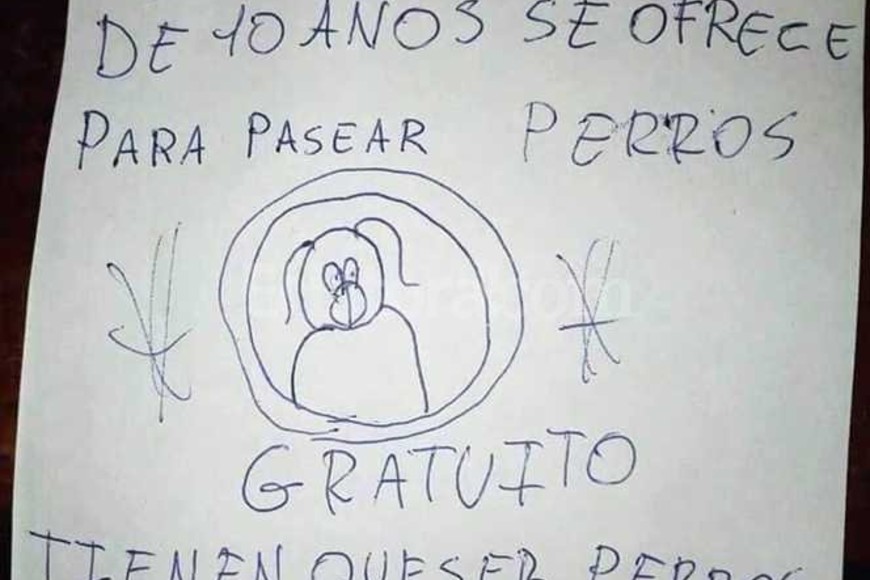 DE 10 AÑOS SE OFRECE
PARA PASEAR PERROS
GRATUITO
TIENEN QUE SER PERROS